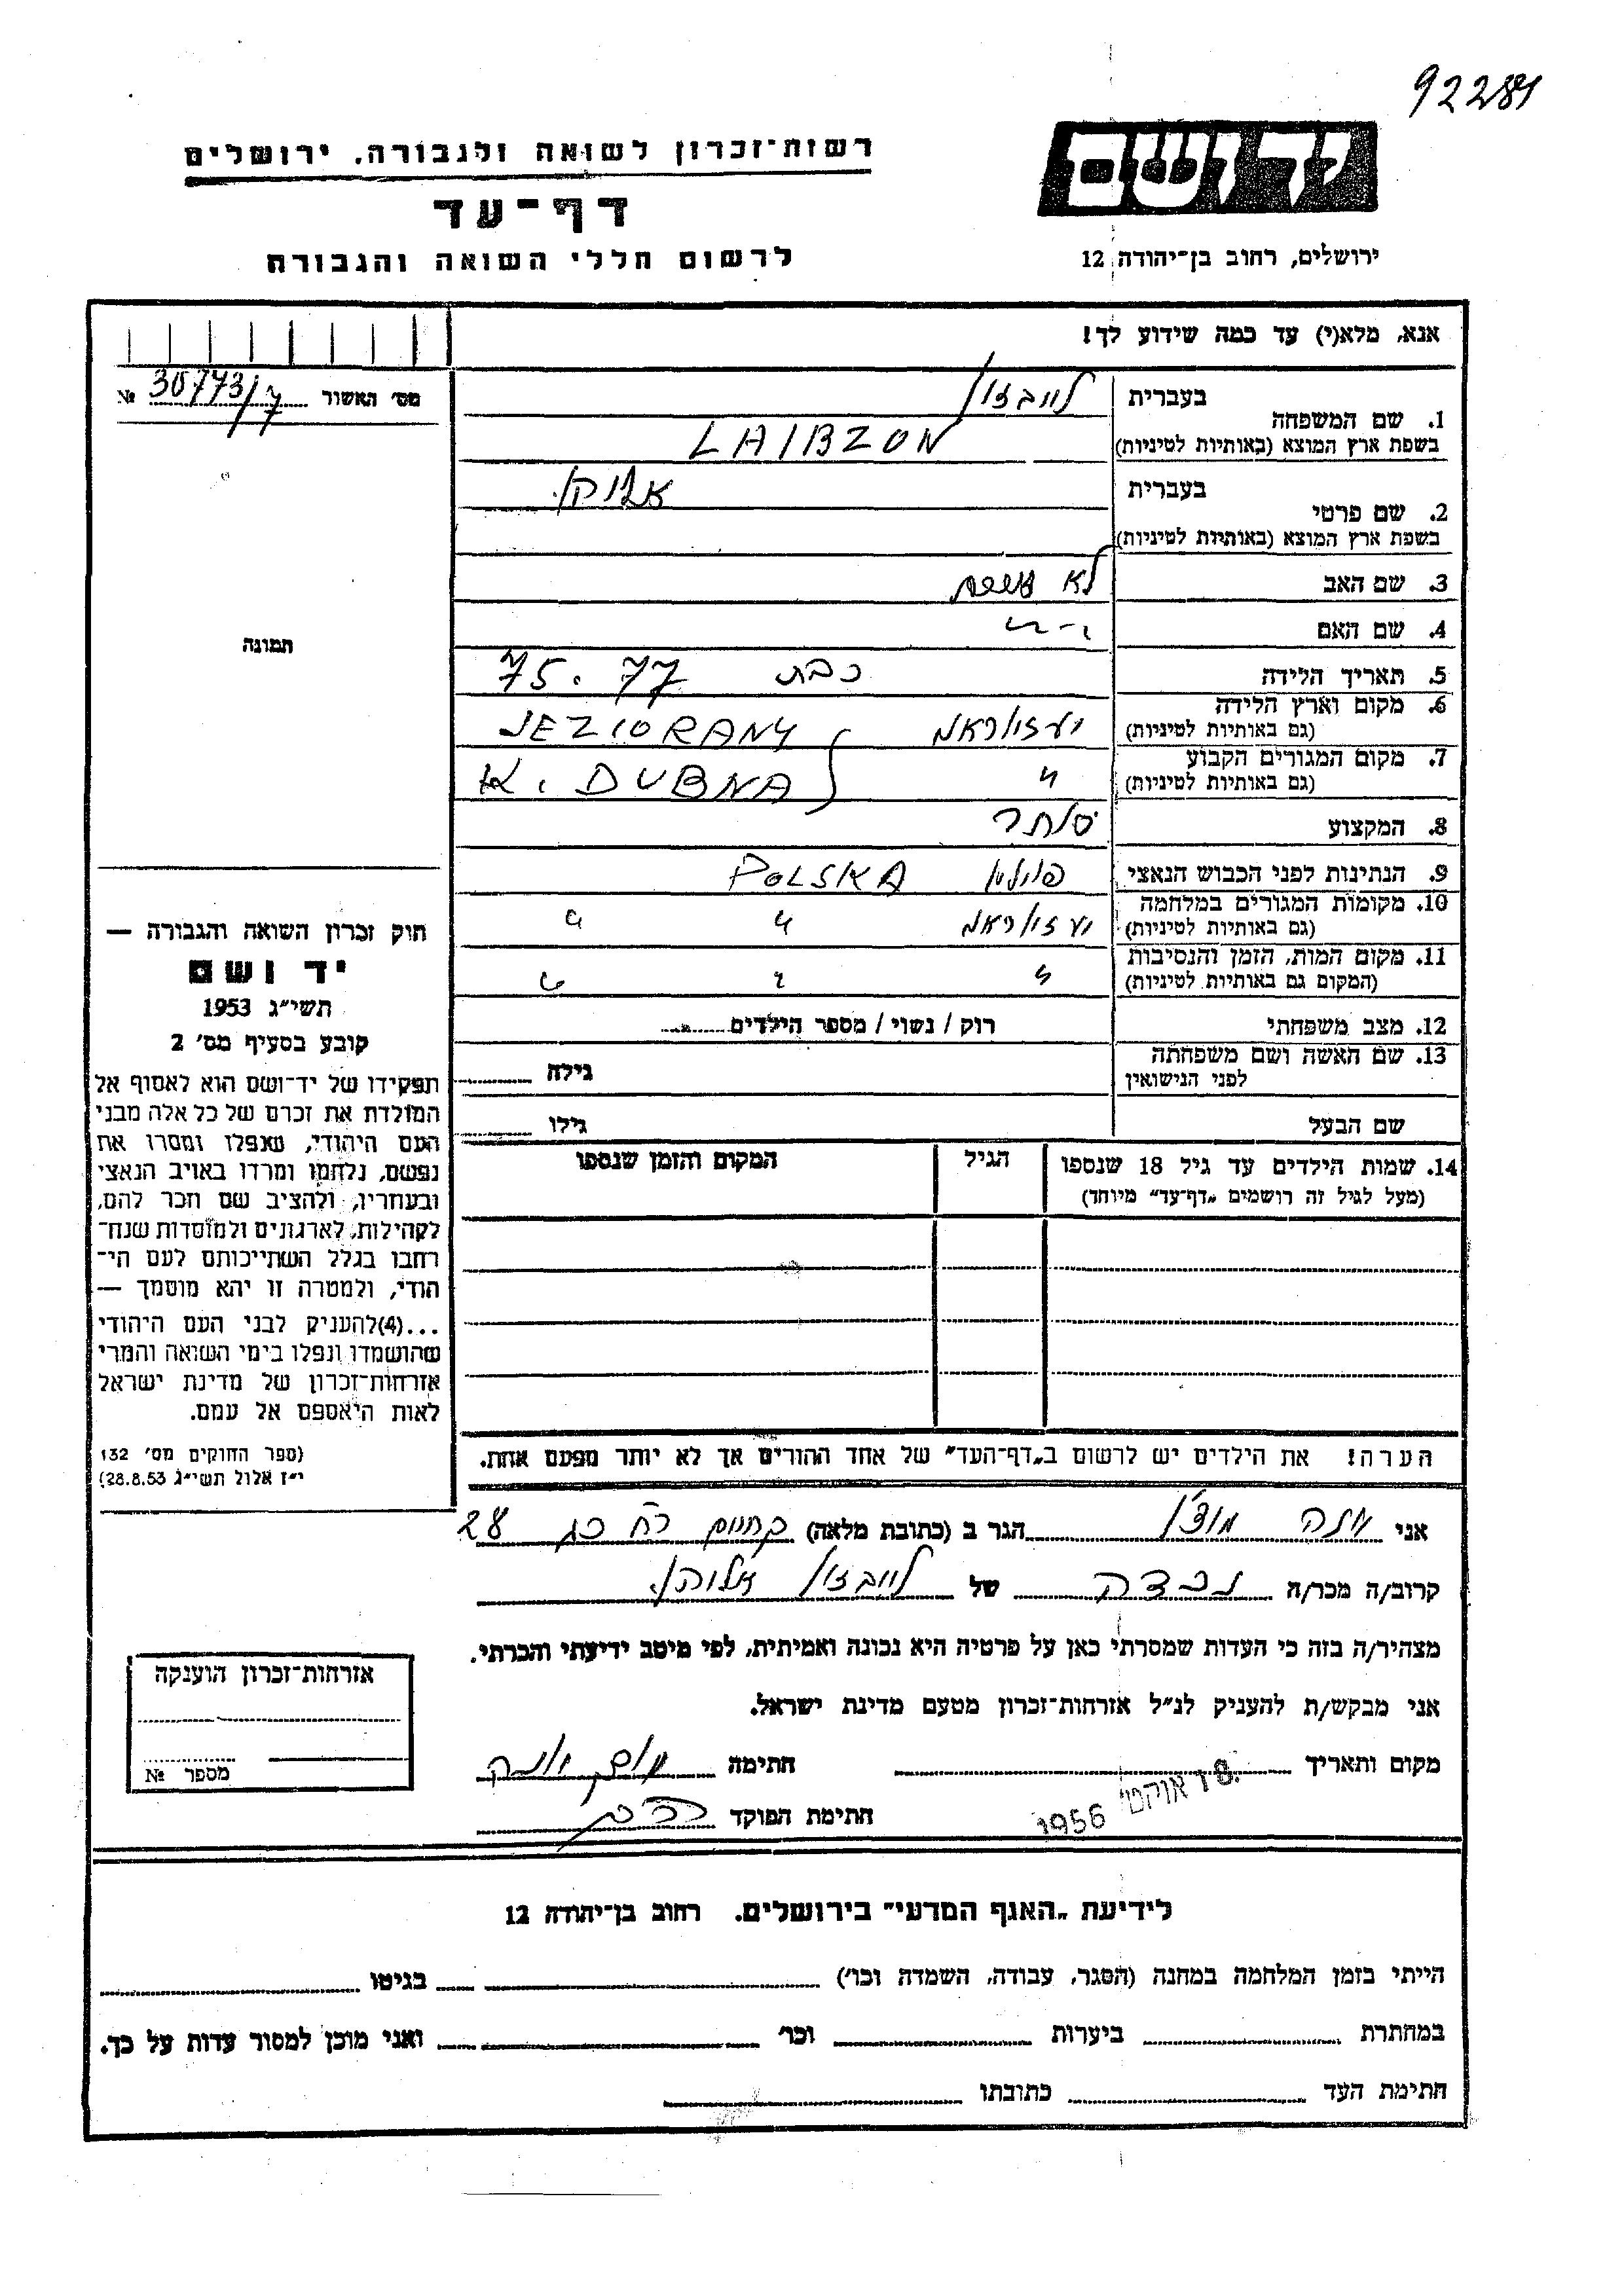 92281
יד ושם
רשות־זכרון לשואה ולגבורה, ירושלים
דף־עד
לרשום חללי השואה והגבורה
ירושלים, רחוב בן־יהודה 12
אנא, מלא(י) עד כמה שידוע לך!
מס׳ האשור 30773/7 №
1. שם המשפחה
בעברית לייבזון
בשפת ארץ המוצא (באותיות לטיניות) LAIBZON
2. שם פרטי
בעברית
בשפת ארץ המוצא (באותיות לטיניות)
3. שם האב לא
4. שם האם
5. תאריך הלידה כבת 75. 77
6. מקום וארץ הלידה
(גם באותיות לטיניות) JEZIORANY
7. מקום המגורים הקבוע
(גם באותיות לטיניות) " K. DUBNA
8. המקצוע סוחר
9. הנתינות לפני הכבוש הנאצי פולין POLSKA
10. מקומות המגורים במלחמה
(גם באותיות לטיניות) " "
11. מקום המות, הזמן והנסיבות
(המקום גם באותיות לטיניות) " " "
12. מצב משפחתי רוק / נשוי / מספר הילדים
13. שם האשה ושם משפחתה
לפני הנישואין גילה
שם הבעל גילו
14. שמות הילדים עד גיל 18 שנספו הגיל המקום והזמן שנספו
(מעל לגיל זה רושמים „דף־עד״ מיוחד)
הערה! את הילדים יש לרשום ב„דף־העד״ של אחד ההורים אך לא יותר מפעם אחת.
תמונה
חוק זכרון השואה והגבורה —
יד ושם
תשי״ג 1953
קובע בסעיף מס׳ 2
תפקידו של יד־ושם הוא לאסוף אל
המולדת את זכרם של כל אלה מבני
העם היהודי, שנפלו ומסרו את
נפשם, נלחמו ומרדו באויב הנאצי
ובעוזריו, ולהציב שם וזכר להם,
לקהילות, לארגונים ולמוסדות שנח־
רבו בגלל השתייכותם לעם הי־
הודי, ולמטרה זו יהא מוסמך —
...(4) להעניק לבני העם היהודי
שהושמדו ונפלו בימי השואה והמרי
אזרחות־זכרון של מדינת ישראל
לאות היאספם אל עמם.
(ספר החוקים מס׳ 132
י״ז אלול תשי״ג 28.8.53)
אני הגר ב (כתובת מלאה) 28
קרוב/ה מכר/ה נכדה של לייבזון
מצהיר/ה בזה כי העדות שמסרתי כאן על פרטיה היא נכונה ואמיתית, לפי מיטב ידיעתי והכרתי.
אני מבקש/ת להעניק לנ״ל אזרחות־זכרון מטעם מדינת ישראל.
מקום ותאריך 18 אוקט׳ 1956 חתימה
חתימת הפוקד
אזרחות־זכרון הוענקה
מספר №
לידיעת „האגף המדעי״ בירושלים. רחוב בן־יהודה 12
הייתי בזמן המלחמה במחנה (הסגר, עבודה, השמדה וכו׳) בגיטו
במחתרת ביערות וכו׳ ואני מוכן למסור עדות על כך.
חתימת העד כתובתו